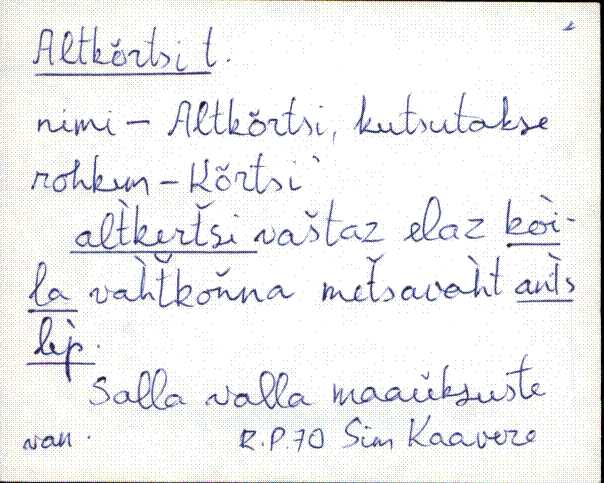 Altkõrtsi t.
nimi – Altkõrtsi, kutsutakse
rohkem – Kõrtsi
alt̀keřtši vaštaz elaz kòi-
la vaht̆koňna metšavaht ànts
lèp.
Salla valla maaüksuste
van. R.P.70 Sim Kaavere